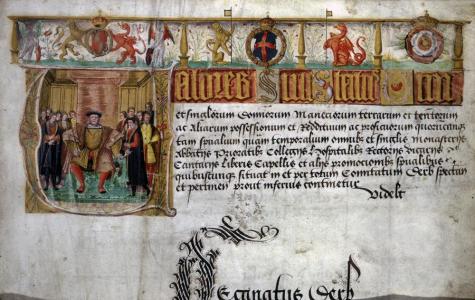 et singlorum Domiorum Maneriorum terrarum et tentorum
ac Aliarum possessionum et Reddituum ac proficiorum quorumcunque
tam spualium quam temporalium omnibus et singulis monasterijs
Abbathijs Prioratibus Collegijs Hospitalibus Rectorijs Vicarijs
Cantarijs Liberis Capellis et alijs promocionibus spualibus
quibuscunque situat in et per totum Comitatum Derb spectan
et pertinen prout inferius continetur
Videlt
Decanatus Derb